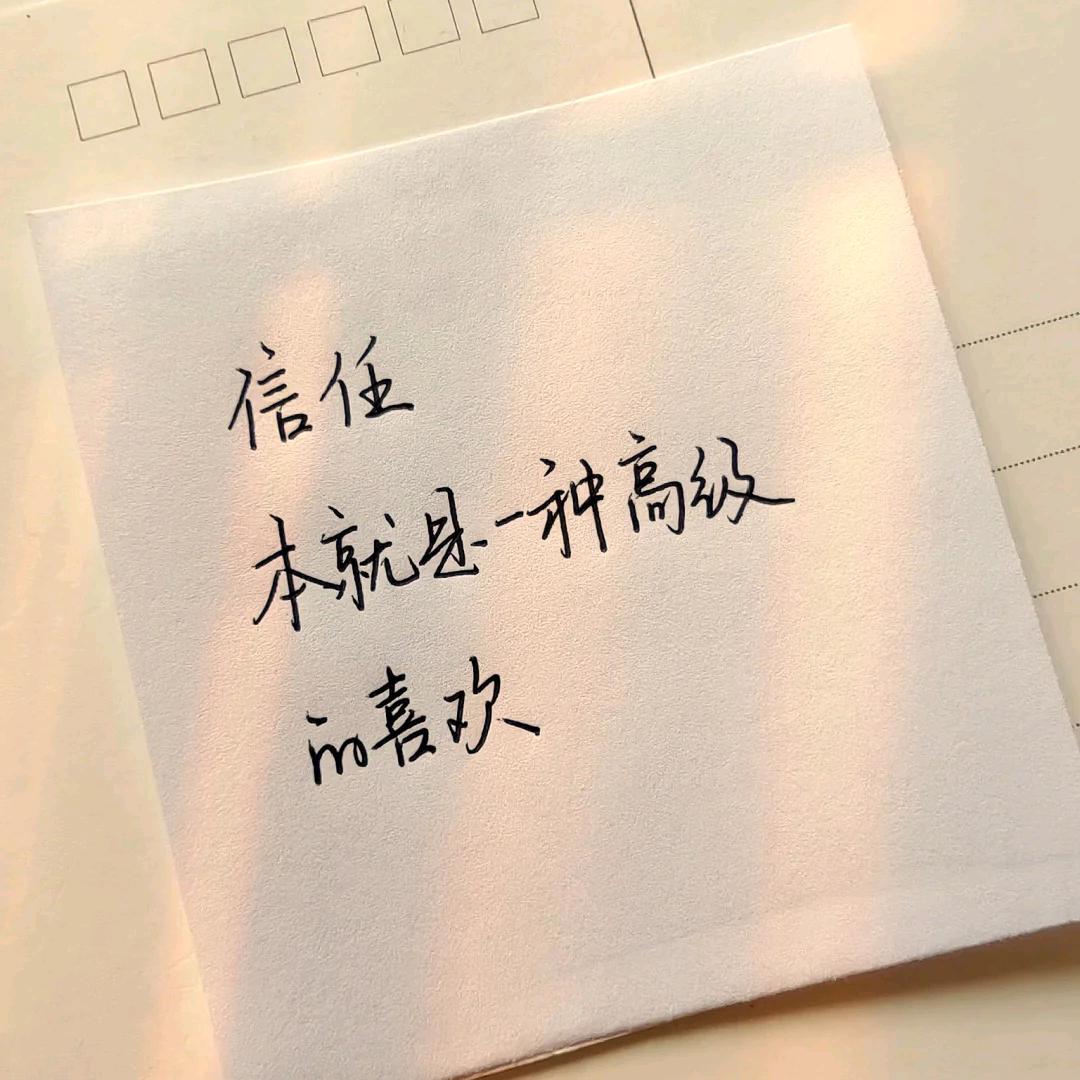 信任
本就是一种高级
的喜欢